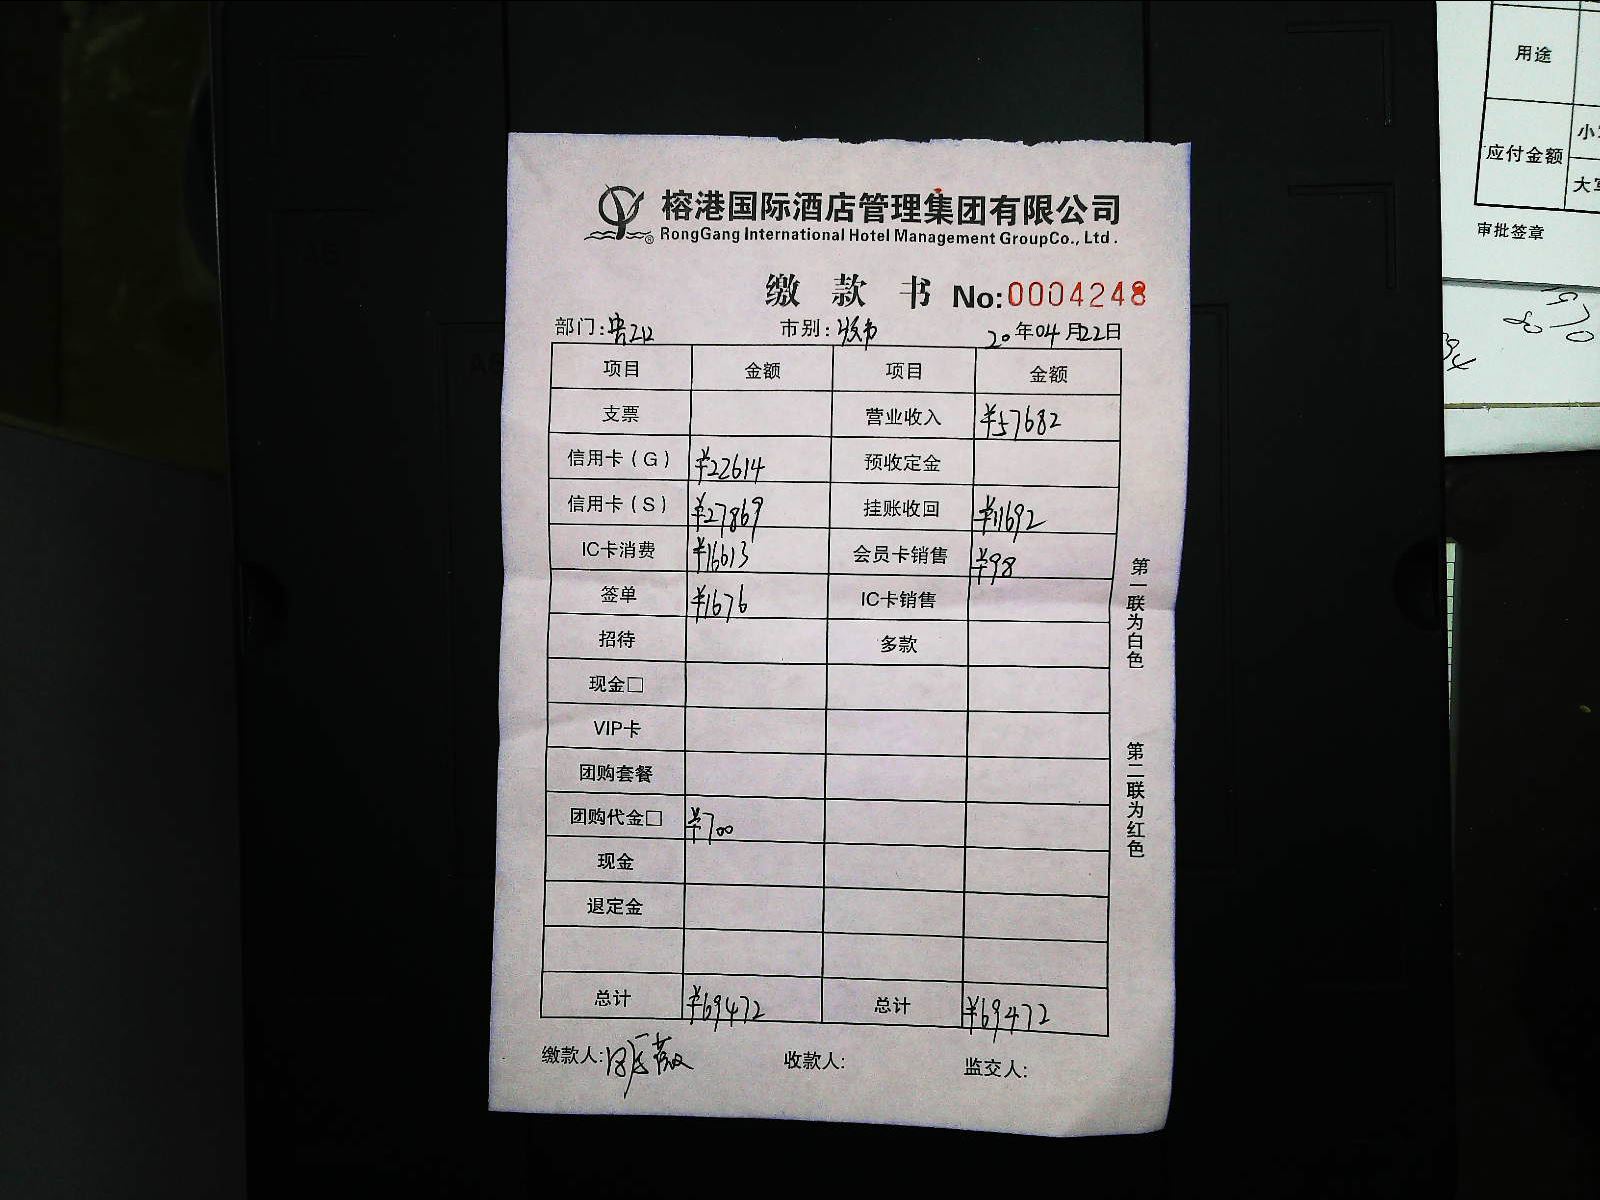 榕港国际酒店管理集团有限公司
RongGang International Hotel Management GroupCo., Ltd.
缴 款 书 No:0004248
部门: 市别: 20年04月22日
项目 金额 项目 金额
支票 营业收入 ¥57682
信用卡(G) ¥22614 预收定金
信用卡(S) ¥27869 挂账收回 ¥11692
IC卡消费 ¥16613 会员卡销售 ¥98
签单 ¥1676 IC卡销售
招待 多款
现金□
VIP卡
团购套餐
团购代金□ ¥700
现金
退定金
总计 ¥69472 总计 ¥69472
缴款人: 收款人: 监交人:
第一联为白色
第二联为红色
用途
应付金额
小
大写
审批签章